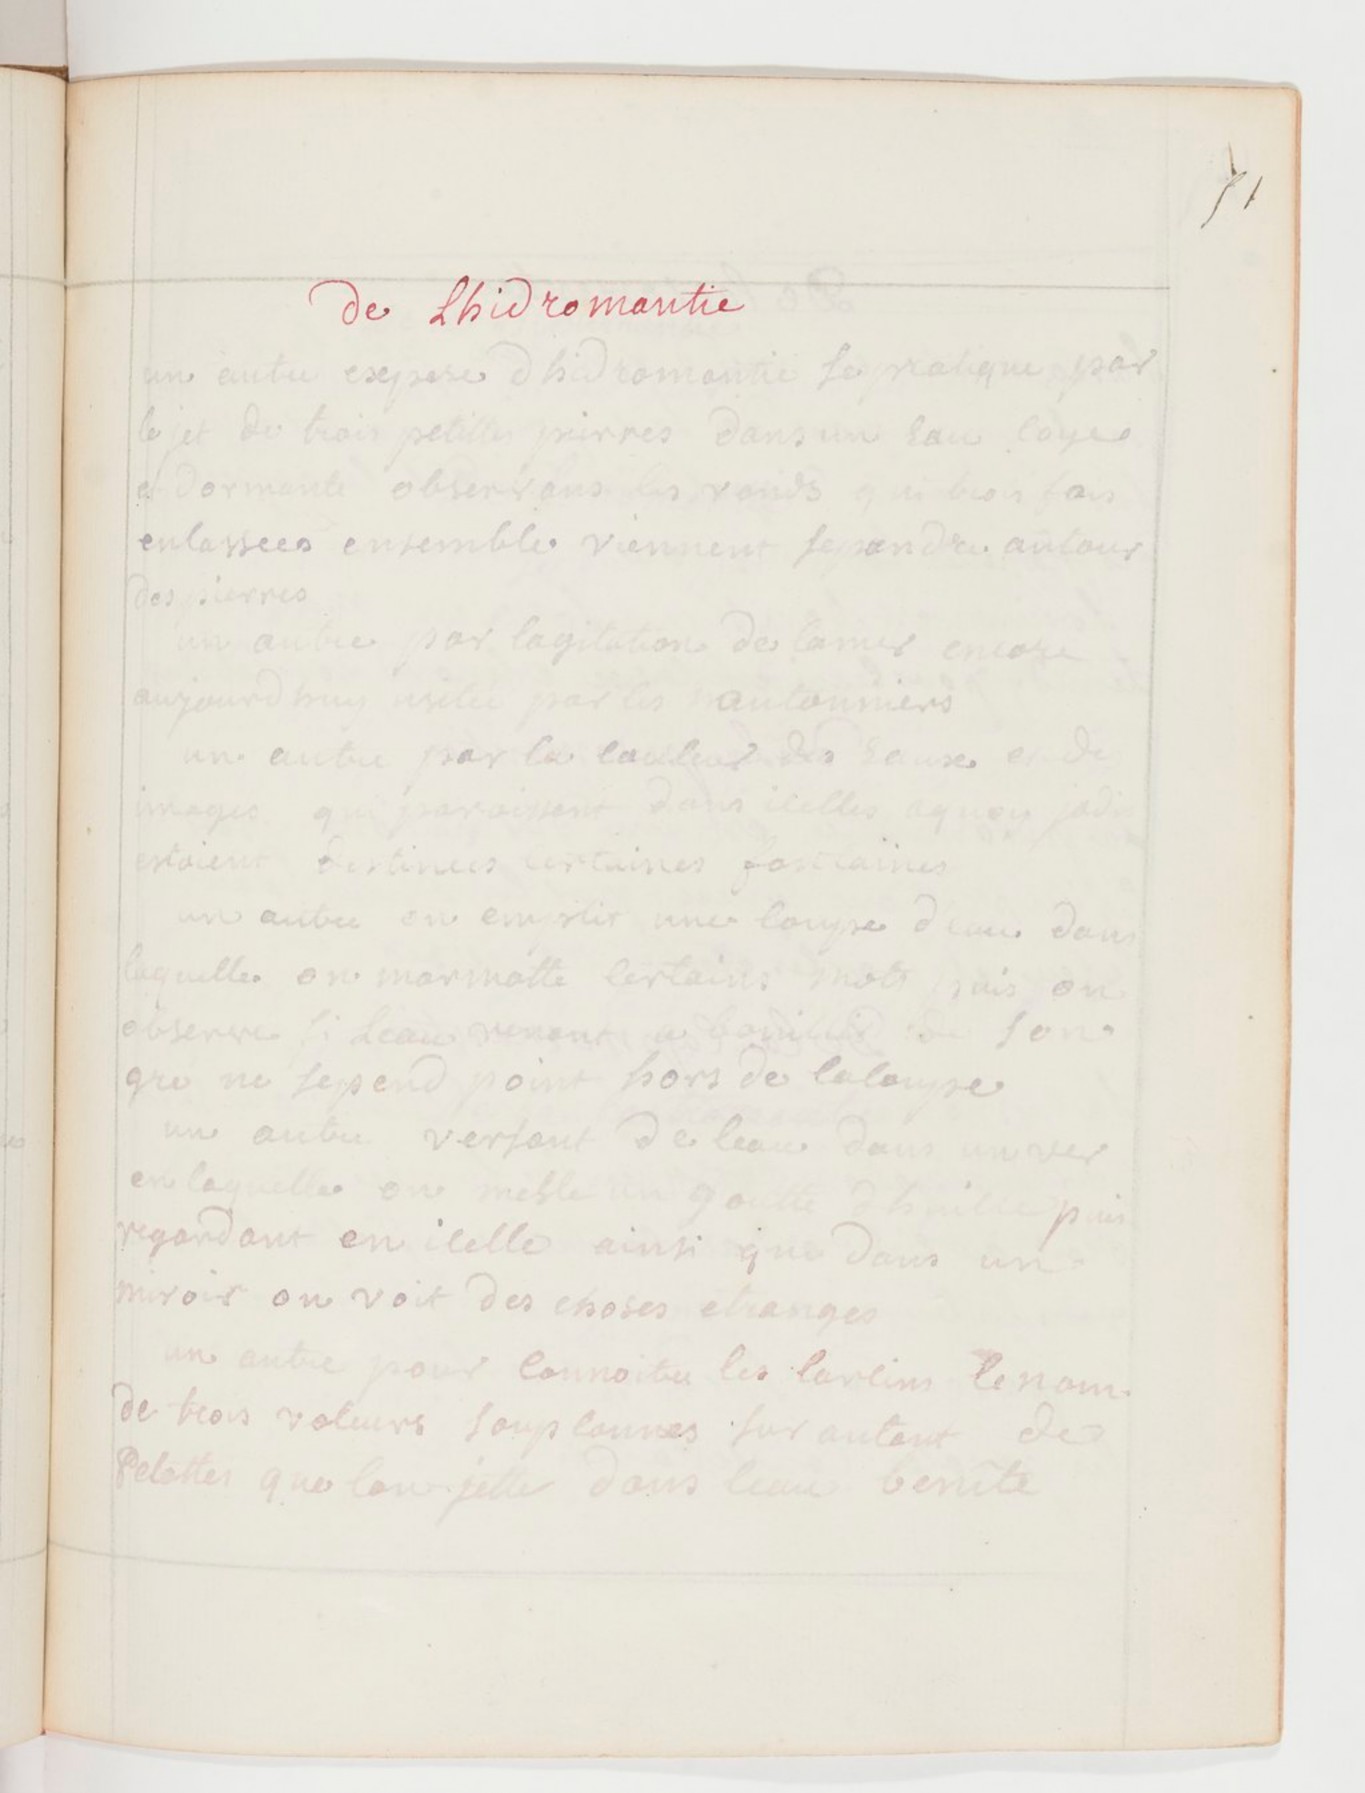 71
de Lhidromantie
un autre espese dhidromantie se pratique par
le jet de trois petittes pierres dans un Eau Coye
et dormante observans les ronds qui trois fois
enlassees ensemble viennent sepandre autour
des pierres
un autre par lagitation de lamer encore
aujourdhuy usitee par les nautonniers
un autre par la couleur des Eaux et de
images qui paroissent dans icelles aquoy jadis
estoient destinees certaines fontaines
un autre on emplit une coupe deau dans
laquelle on marmotte certains mots puis on
observe si leau venant a bouillir de son
gre ne sepend point hors de lacoupe
un autre versant de leau dans un ver
en laquelle on mesle un goutte dhuille puis
regardant en icelle ainsi que dans un
miroir on voit des choses etranges
un autre pour connoitre les larcins le nom
de trois voleurs soupconnes sur autant de
Pelottes que lon jette dans leau benite